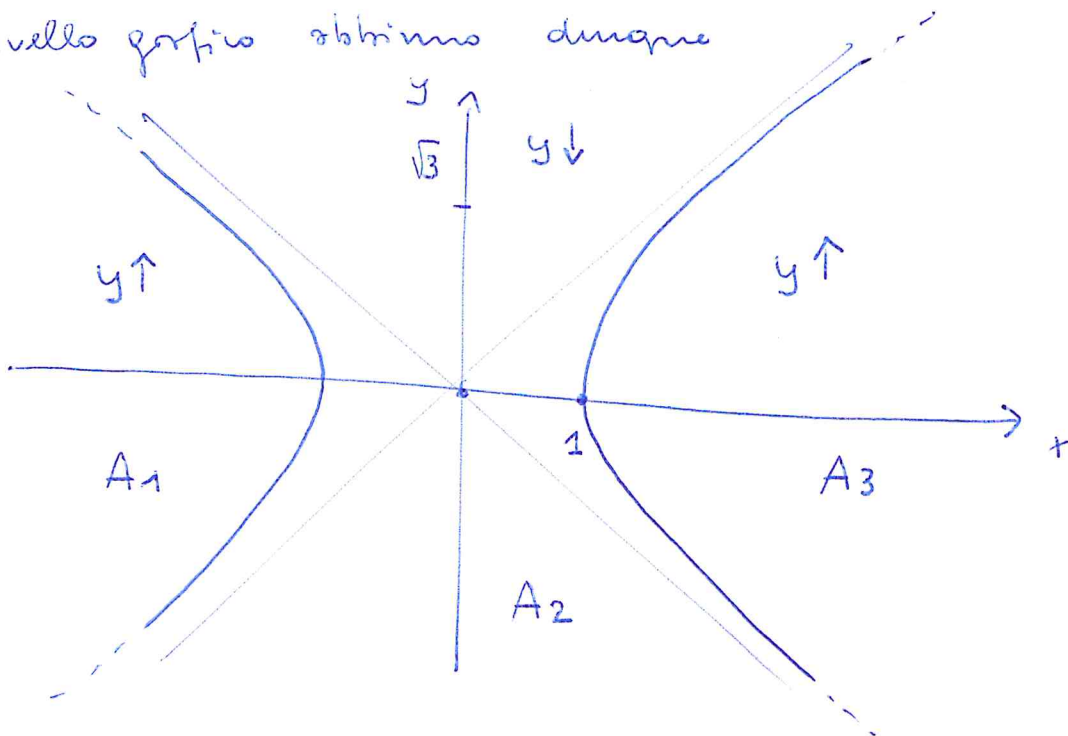 vello grafico abbiamo dunque
y
√3
y↓
y↑
y↑
1
x
A1
A3
A2